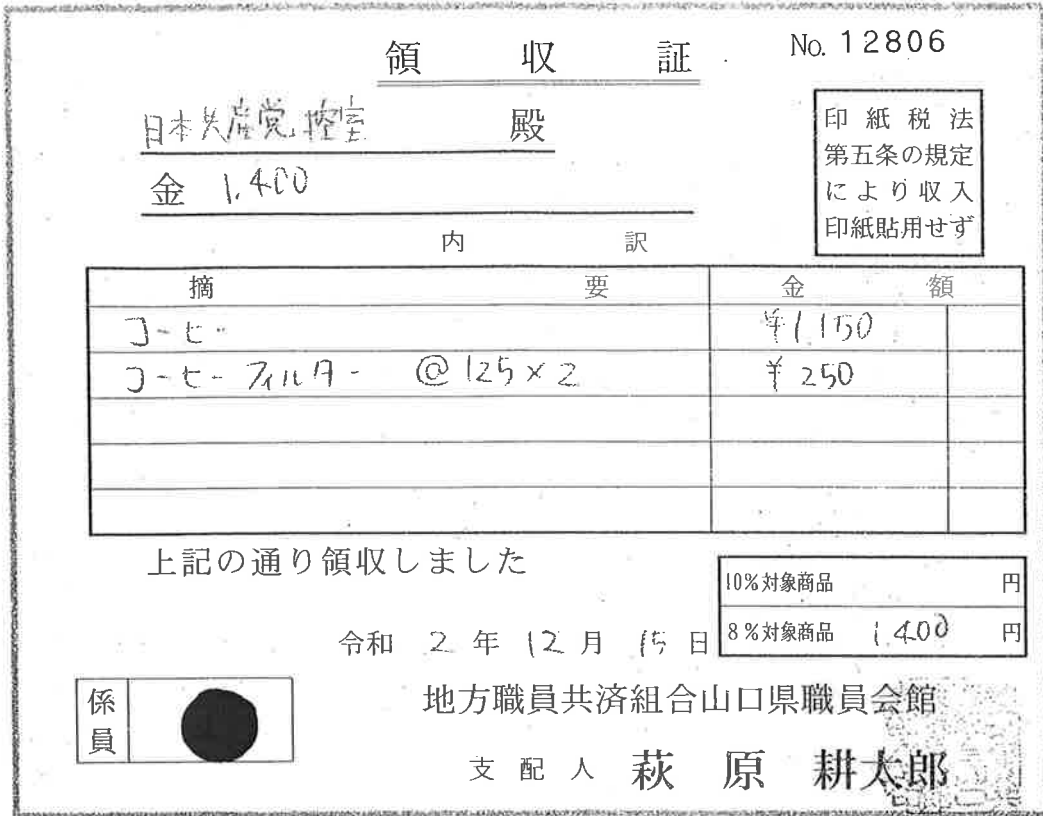 領収証
No. 12806
日本共産党控室 殿
金 1,400
印紙税法
第五条の規定
により収入
印紙貼用せず
内訳
摘要 金額
コーヒー ¥1,150
コーヒーフィルター @125×2 ¥250
上記の通り領収しました
10%対象商品 円
8%対象商品 1,400 円
令和 2年 12月 15日
係員
地方職員共済組合山口県職員会館
支配人 萩原 耕太郎